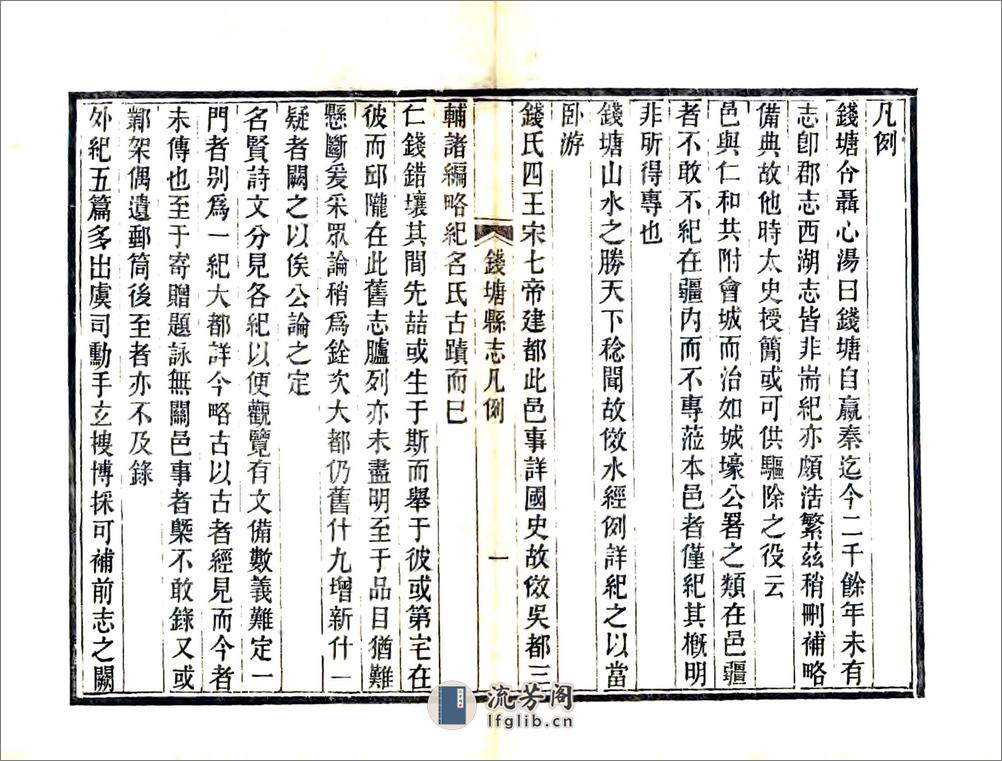 凡例
錢塘令聶心湯曰錢塘自嬴秦迄今二千餘年未有
志卽郡志西湖志皆非耑紀亦頗浩繁茲稍刪補略
備典故他時太史授簡或可供驅除之役云
邑與仁和共附會城而治如城壕公署之類在邑疆
者不敢不紀在疆內而不專蒞本邑者僅紀其槪明
非所得專也
錢塘山水之勝天下稔聞故倣水經例詳紀之以當
卧游
錢氏四王宋七帝建都此邑事詳國史故倣吳都三
錢塘縣志凡例
一
輔諸編略紀名氏古蹟而巳
仁錢錯壤其間先喆或生于斯而舉于彼或第宅在
彼而邱隴在此舊志臚列亦未盡明至于品目猶難
懸斷爰采眾論稍爲銓次大都仍舊什九增新什一
疑者闕之以俟公論之定
名賢詩文分見各紀以便觀覽有文備數義難定一
門者别爲一紀大都詳今略古以古者經見而今者
未傳也至于寄贈題詠無關邑事者槩不敢錄又或
鄴架偶遺郵筒後至者亦不及錄
外紀五篇多出虞司勳手玄搜博採可補前志之闕
流芳阁
lfglib.cn